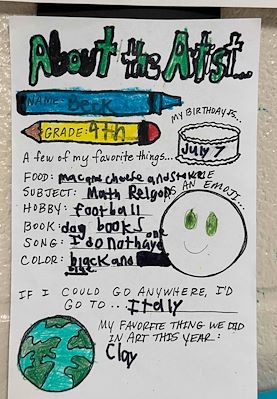 About the Artist...
NAME: Beck
MY BIRTHDAY IS...
GRADE: 4th
July 7
A few of my favorite things...
FOOD: macani cheese and
SUBJECT: Math Relgon
AS AN EMOJI...
HOBBY: football
BOOK: dog books
SONG: I do not have one
COLOR: black and blue
IF I COULD GO ANYWHERE, I'D
GO TO... Italy
MY FAVORITE THING WE DID
IN ART THIS YEAR:
Clay